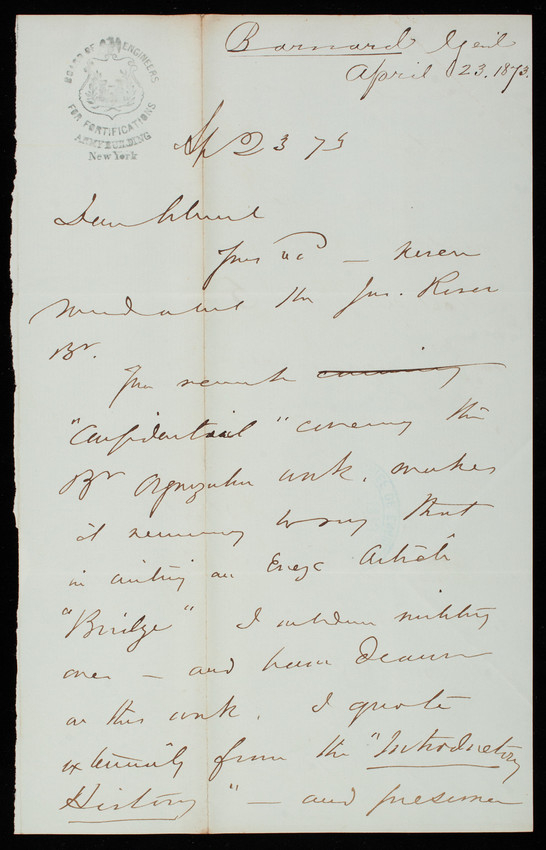 BOARD OF ENGINEERS
FOR FORTIFICATIONS
ARMY BUILDING
New York
Barnard Genl
April 23. 1873.
Ap 23 73
Dear
Yours – never
mind about the Jas. River
Br.
Your remark
"Confidential" concerning the
Br work, makes
it necessary to say that
in writing an Article
"Bridge" I military
ones – and have drawn
on this work. I quote
extensively from the "Introductory
History" – and presume